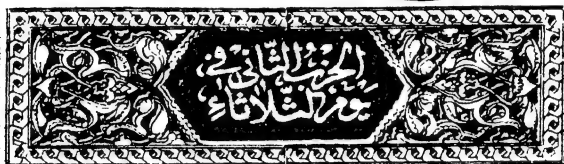 الحزب الثاني في
يوم الثلاثاء